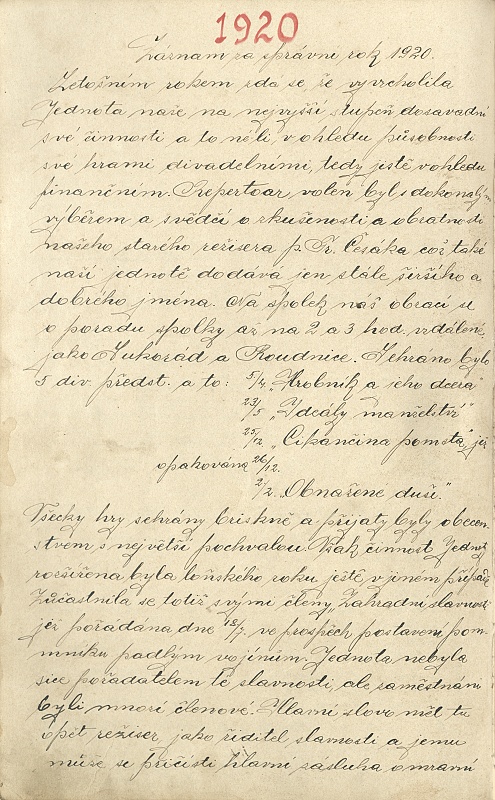 1920
Záznam za správní rok 1920.
Letošním rokem zdá se, že vyvrcholila
Jednota naše na nejvyšší stupeň dosavadní
své činnosti a to néli, v ohledu působnosti
své hrami divadelními, tedy jistě v ohledu
finančním. Repertoar, volen byl s dokonalým
výběrem a svědčí o zkušenosti a obratnosti
našeho starého režisera p. Fr. Čěsáka což také
naší jednotě dodává jen stále širšího a
dobrého jména. Na spolek náš obrací se
o poradu spolky až na 2 a 3 hod. vzdálené,
jako Sukorád a Roudnice. Sehráno bylo
5 div. předst. a to: 5/4 „Hrobník a jeho dcera"
23/5 „Ideály manželství"
25/12 „Cikánčina pomsta", jež
opakována 26/12.
2/2. „Obnažené duši."
Všecky hry sehrány briskně a přijaty byly obecen-
stvem s největší pochvalou. Však činnost Jednoty
rozšířena byla loňského roku ještě v jiném případě
Zúčastnila se totiž svými členy, Zahradní slavnosti
jež pořádána dne 18/7. ve prospěch postavení pom-
mníku padlým vojínům. Jednota nebyla
sice pořadatelem té slavnosti, ale zaměstnáni
byli mnozí členové. Hlavní slovo měl tu
opět režiser, jako řiditel slavnosti a jemu
může se přičísti hlavní zásluha o mravní